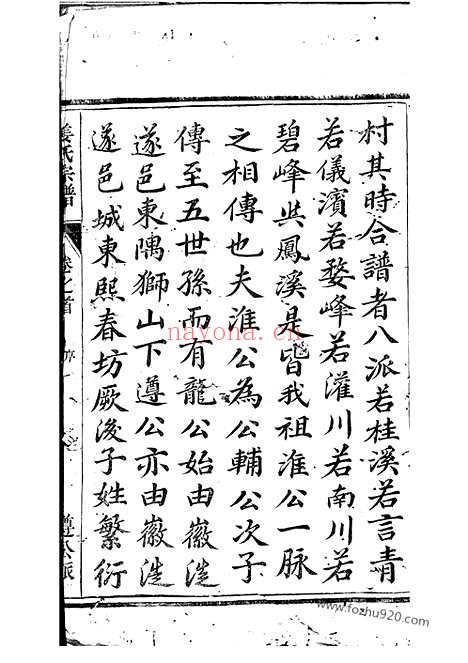 村其時合譜者八派若桂溪若言青
若儀濱若婺峰若灌川若南川若
碧峰與鳳溪是皆我祖淮公一脉
之相傳也夫淮公為公輔公次子
傳至五世孫而有龍公始由徽徙
遂邑東隅獅山下遵公亦由徽徙
遂邑城東熙春坊厥後子姓繁衍
姜氏宗譜 卷之首 序 遵公派
nayona.cn
www.fozhu920.com